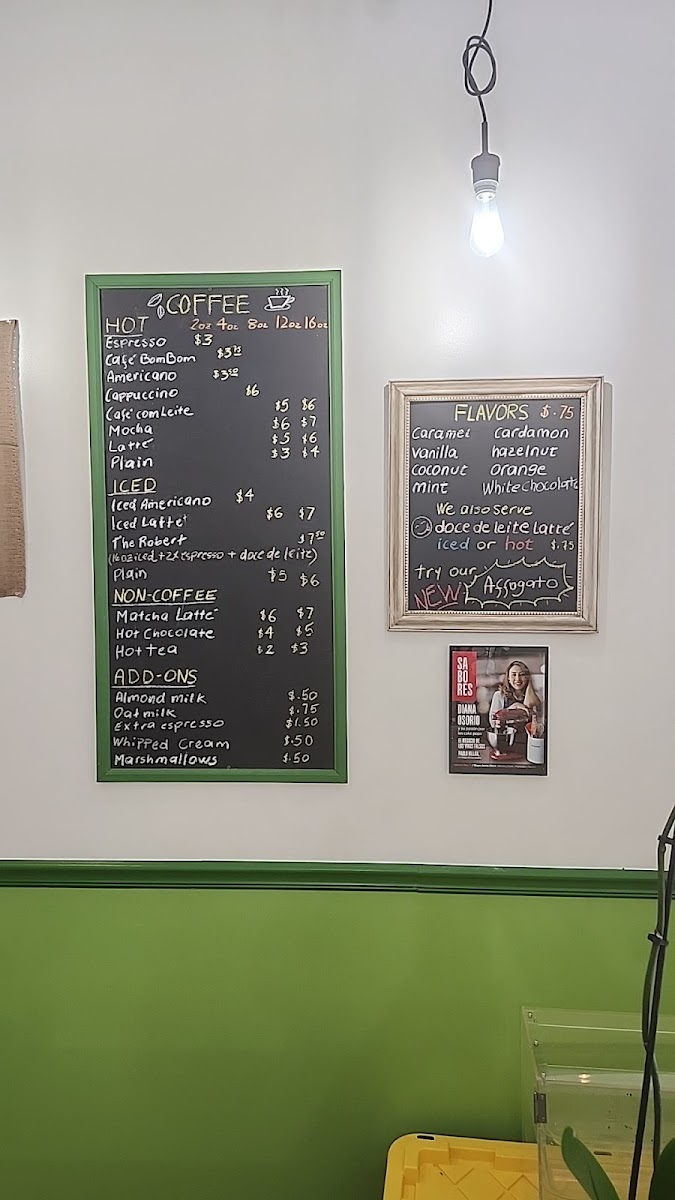 COFFEE
HOT 2oz 4oz 8oz 12oz 16oz
Espresso $3
Café BomBom $3.75
Americano $3.50
Cappuccino $6
Café com Leite $5 $6
Mocha $6 $7
Latté $5 $6
Plain $3 $4
ICED
Iced Americano $4
Iced Latté $6 $7
The Robert $7.50
(16oz iced + 2x espresso + doce de leite)
Plain $5 $6
NON-COFFEE
Matcha Latté $6 $7
Hot Chocolate $4 $5
Hot tea $2 $3
ADD-ONS
Almond milk $.50
Oat milk $.75
Extra espresso $1.50
Whipped Cream $.50
Marshmallows $.50
FLAVORS $.75
Caramel Cardamon
Vanilla hazelnut
Coconut orange
mint White Chocolate
We also serve
doce de leite Latté
iced or hot $.75
try our
NEW! Affogato
SA
BO
RES
DIANA
OSORIO